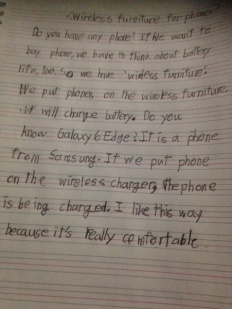 <Wireless furniture for phones>
Do you have any phone? If We want to
buy phone, we have to think about battery
life, too. So we have 'wireless furniture'.
We put phones on the wireless furniture.
it will charge battery. Do you
know Galaxy 6 Edge? It is a phone
from Samsung. If we put phone
on the wireless charger, the phone
is being charged. I like this way
because it's really comfortable